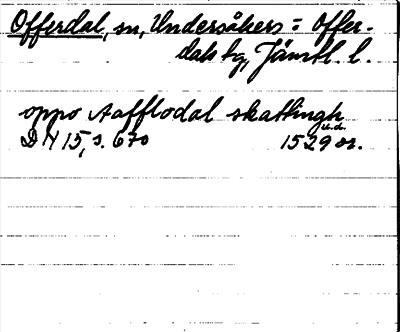 Offerdal, sn, Undersåkers = Offer-
dals tg, Jämtl. l.
oppo Aafflodal skattingh
u.d.
DN 15, s. 670 1529 or.